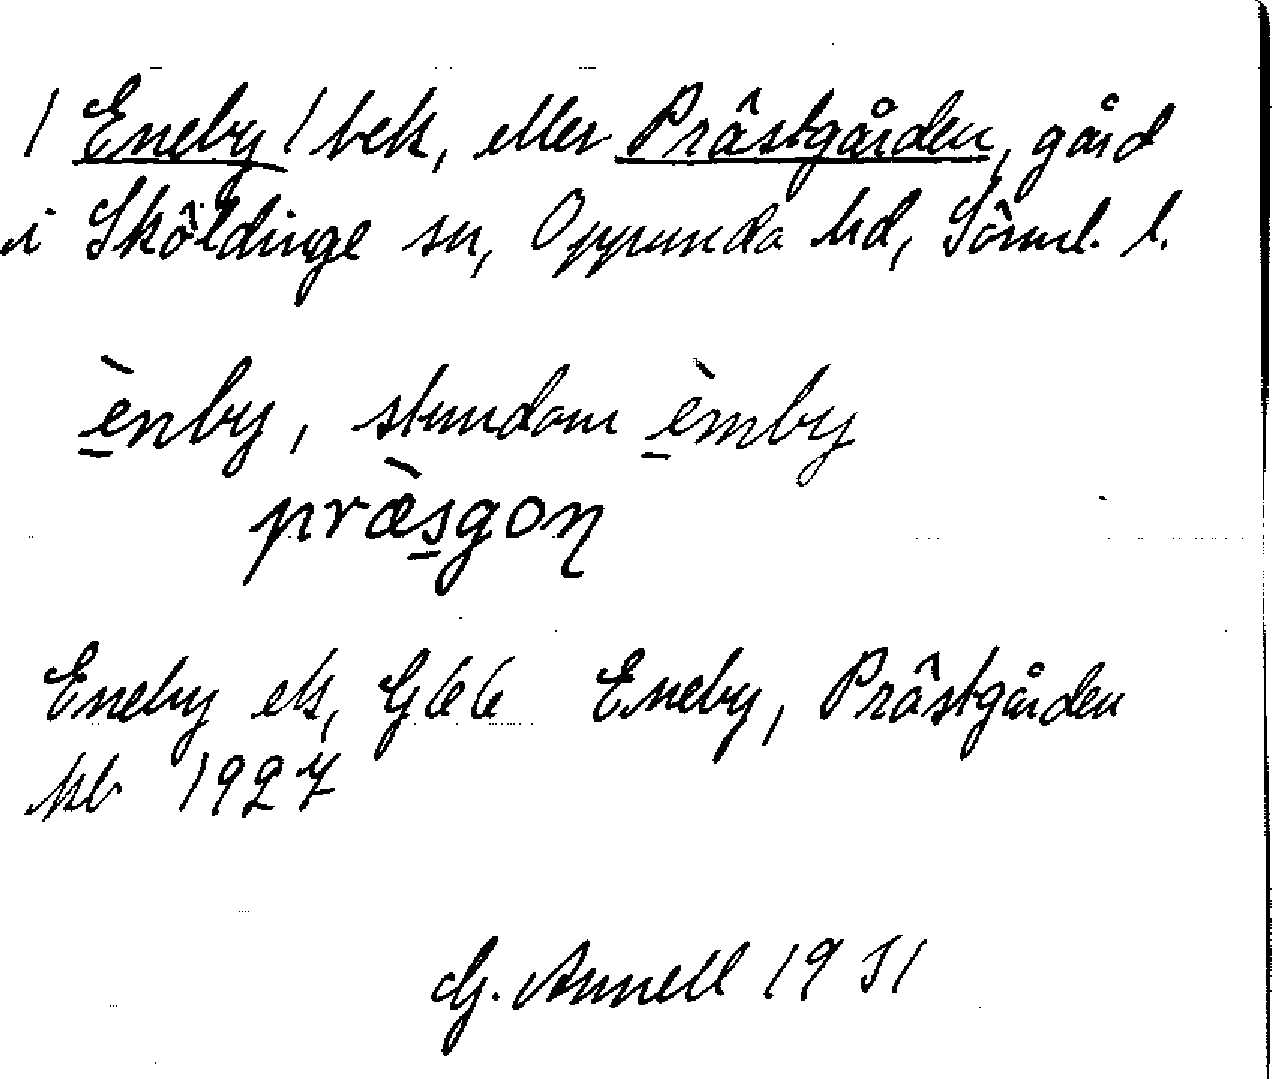 / Eneby / bek, eller Prästgården, gård
i Sköldinge sn, Oppunda hd, Söml. l.
ènby, stundom èmby
præ̀sgoṇ
Eneby ek, G66 Eneby, Prästgården
kb 1927
G. Annell 1931